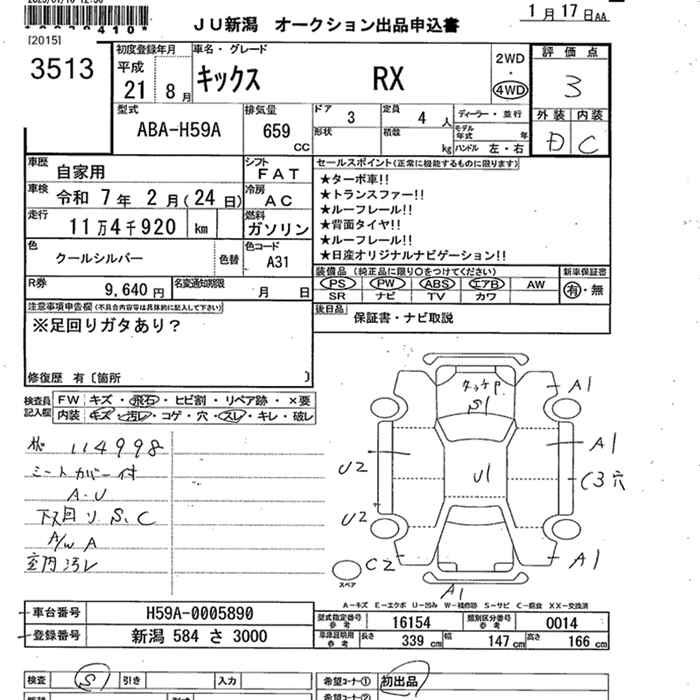 ＪＵ新潟 オークション出品申込書
1月17日AA
[2015]
3513
初度登録年月
平成
21 8月
車名・グレード
キックス RX
2WD
・
4WD
評価点
3
外装 内装
D C
型式
ABA-H59A
排気量
659 CC
ドア 3
定員 4 人
ディーラー・並行
形状
積載 kg
モデル年式 年
ハンドル 左・右
車歴
自家用
シフト
FAT
車検
令和 7年 2月(24日)
冷房
AC
走行
11万4千920 km
燃料
ガソリン
色
クールシルバー
色替
色コード
A31
R券
9,640円
名変通知期限
月 日
セールスポイント(正常に機能するものに限ります)
★ターボ車!!
★トランスファー!!
★ルーフレール!!
★背面タイヤ!!
★ルーフレール!!
★日産オリジナルナビゲーション!!
装備品 (純正品に限り○をつけてください)
PS PW ABS エアB AW
SR ナビ TV カワ
新車保証書
有・無
後日品
保証書・ナビ取説
注意事項申告欄(不具合内容等は具体的に記入して下さい)
※足回りガタあり?
修復歴 有〔箇所 〕
検査員記入欄
FW キズ・飛石・ヒビ割・リペア跡・×要
内装 キズ・汚レ・コゲ・穴・スレ・キレ・破レ
114998
シートカバー付
A・U
下回り S、C
A/W A
室内汚レ
タッチP
S1
A1
A1
U2
U1
C3穴
U2
C2
A1
A1
スペア
A－キズ E－エクボ U－凹み W－補修跡 S－サビ C－腐食 XX－交換済
車台番号 H59A-0005890
登録番号 新潟 584 さ 3000
型式指定番号 参考 16154
類別区分番号 参考 0014
車庫証明用 参考 長さ 339cm 幅 147cm 高さ 166cm
検査 S 引き 入力
希望コーナー① 初出品
希望コーナー②